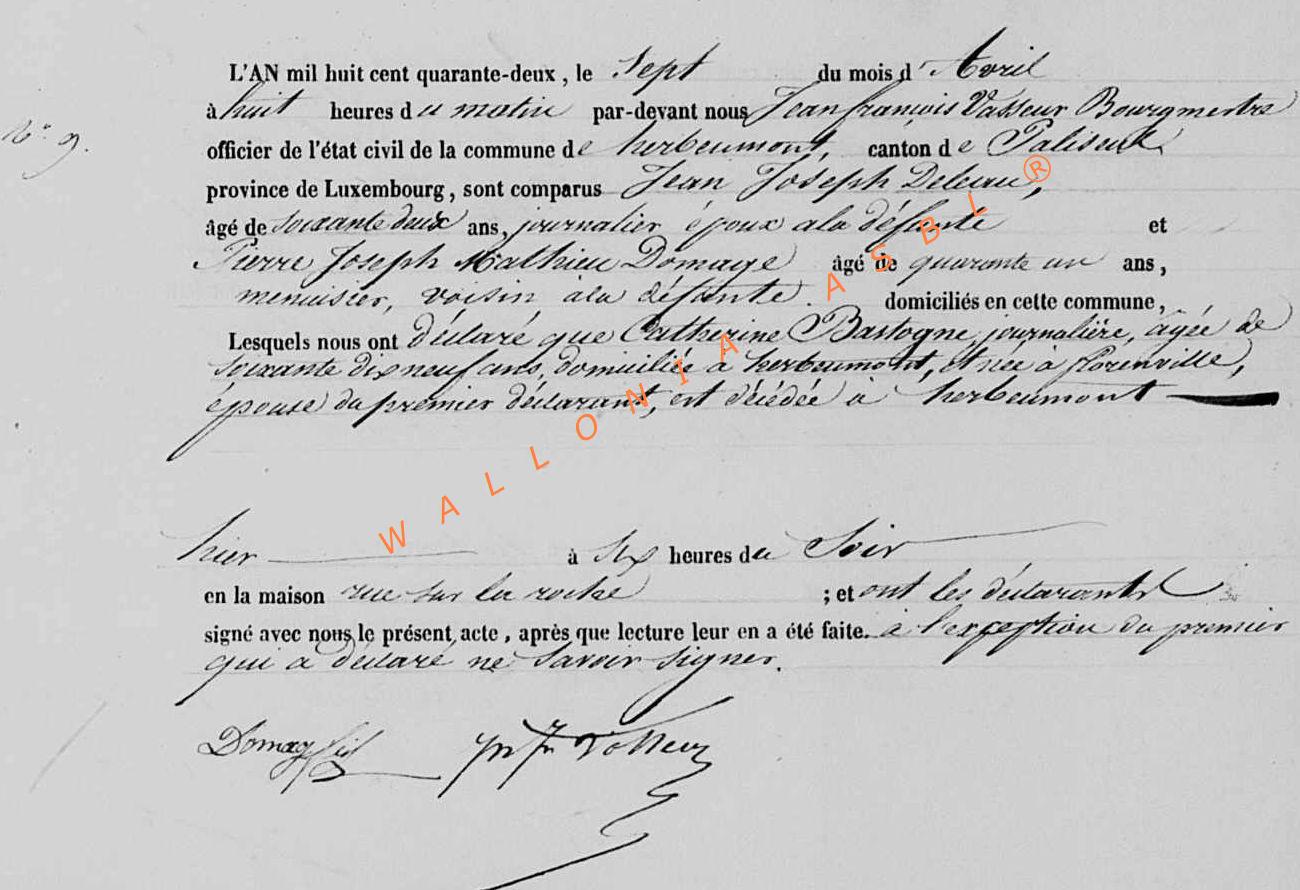 L'AN mil huit cent quarante-deux, le Sept du mois d'Avril
N° 9.
à huit heures du matin par-devant nous Jean françois Vasseur Bourgmestre
officier de l'état civil de la commune de herbeumont, canton de Paliseul
province de Luxembourg, sont comparus Jean Joseph Deleau,
âgé de soixante deux ans, journalier époux ala défunte et
Pierre Joseph Mathieu Domage âgé de quarante un ans,
menuisier, voisin àla défunte. domiciliés en cette commune,
Lesquels nous ont déclaré que Catherine Bastogne, journalière, âgée de
soixante dix neuf ans, domiciliée à herbeumont, et née à florenville,
épouse du premier déclarant, est décédée à herbeumont
hier à six heures du Soir
en la maison rue sur la roche ; et ont les déclarants
signé avec nous le présent acte, après que lecture leur en a été faite. a l'exception du premier
qui a déclaré ne Savoir signer.
Domage Jn fr Vasseur
WALLONIA ASBL ®